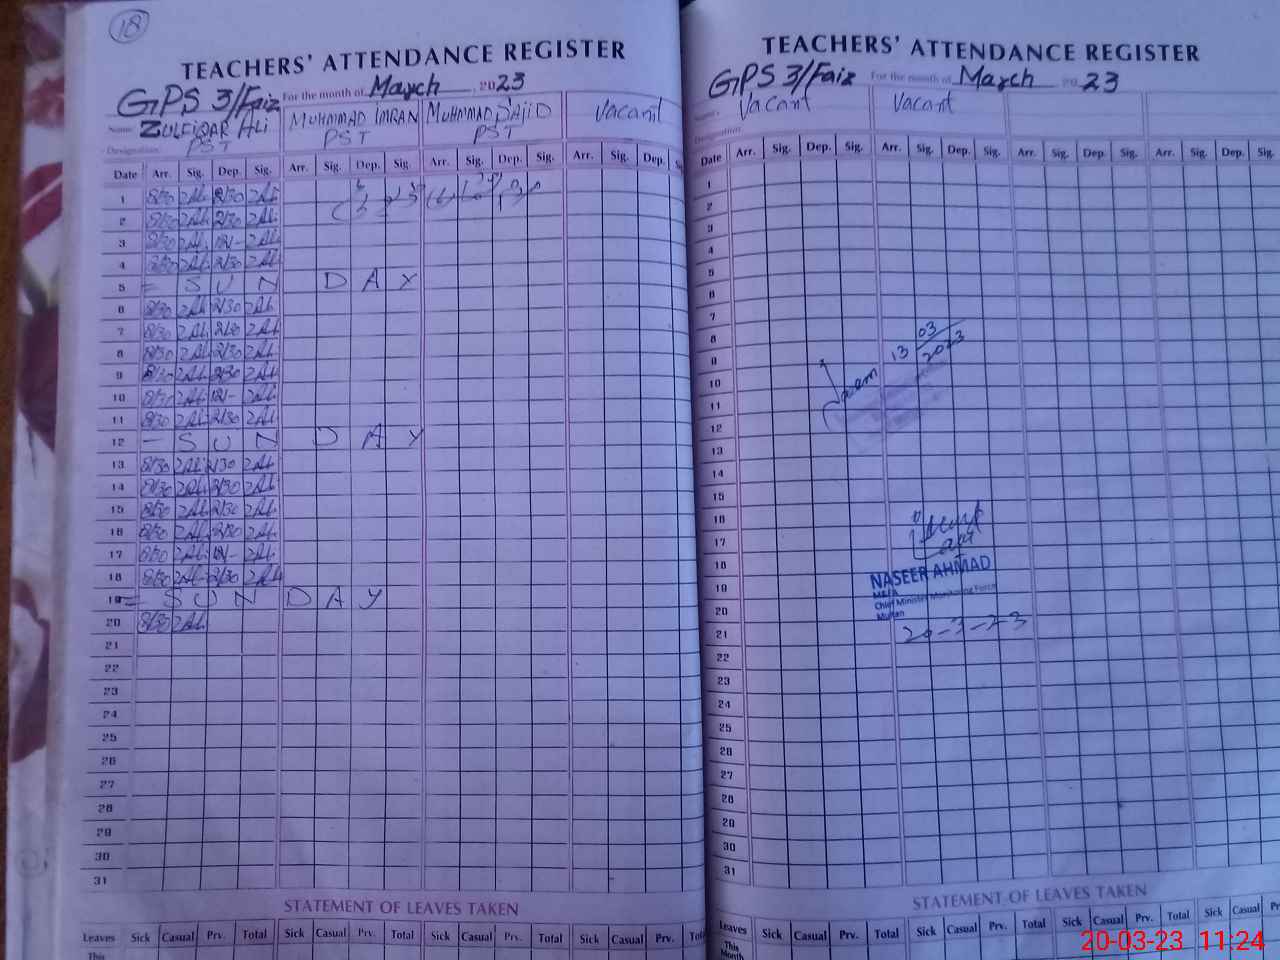 18
TEACHERS' ATTENDANCE REGISTER
GPS 3/Faiz For the month of March 2023
Name ZULFIQAR ALI MUHMMAD IMRAN MUHMMAD SAJID Vacant
Designation PST PST PST
Date Arr. Sig. Dep. Sig. Arr. Sig. Dep. Sig. Arr. Sig. Dep. Sig. Arr. Sig. Dep.
1 8/30 2Al 2/30 2Al
2 8/30 2Al 2/30 2Al
3 8/30 2Al 12/- 2Al
4 8/30 2Al 2/30 2Al
5 = SUN DAY
6 8/30 2Al 2/30 2Al
7 8/30 2Al 2/30 2Al
8 8/30 2Al 2/30 2Al
9 8/30 2Al 2/30 2Al
10 8/30 2Al 12/- 2Al
11 8/30 2Al 2/30 2Al
12 — SUN DAY
13 8/30 2Al 2/30 2Al
14 8/30 2Al 2/30 2Al
15 8/30 2Al 2/30 2Al
16 8/30 2Al 2/30 2Al
17 8/30 2Al 12/- 2Al
18 8/30 2Al 2/30 2Al
19 = SUN DAY
20 8/30 2Al
21
22
23
24
25
26
27
28
29
30
31
STATEMENT OF LEAVES TAKEN
Leaves Sick Casual Prv. Total Sick Casual Prv. Total Sick Casual Prv. Total Sick Casual Prv.
This
TEACHERS' ATTENDANCE REGISTER
GPS 3/Faiz For the month of March 2023
Name Vacant Vacant
Designation
Date Arr. Sig. Dep. Sig. Arr. Sig. Dep. Sig. Arr. Sig. Dep. Sig. Arr. Sig. Dep. Sig.
1
2
3
4
5
6
7
8
13 03 2023
9
10
11
12
13
14
15
16
17
18
NASEER AHMAD
19
M&EA
Chief Minister Monitoring Force
20
Multan
21
20-3-23
22
23
24
25
26
27
28
29
30
31
STATEMENT OF LEAVES TAKEN
Leaves Sick Casual Prv. Total Sick Casual Prv. Total Sick Casual Prv. Total Sick Casual
This Month
20-03-23 11:24